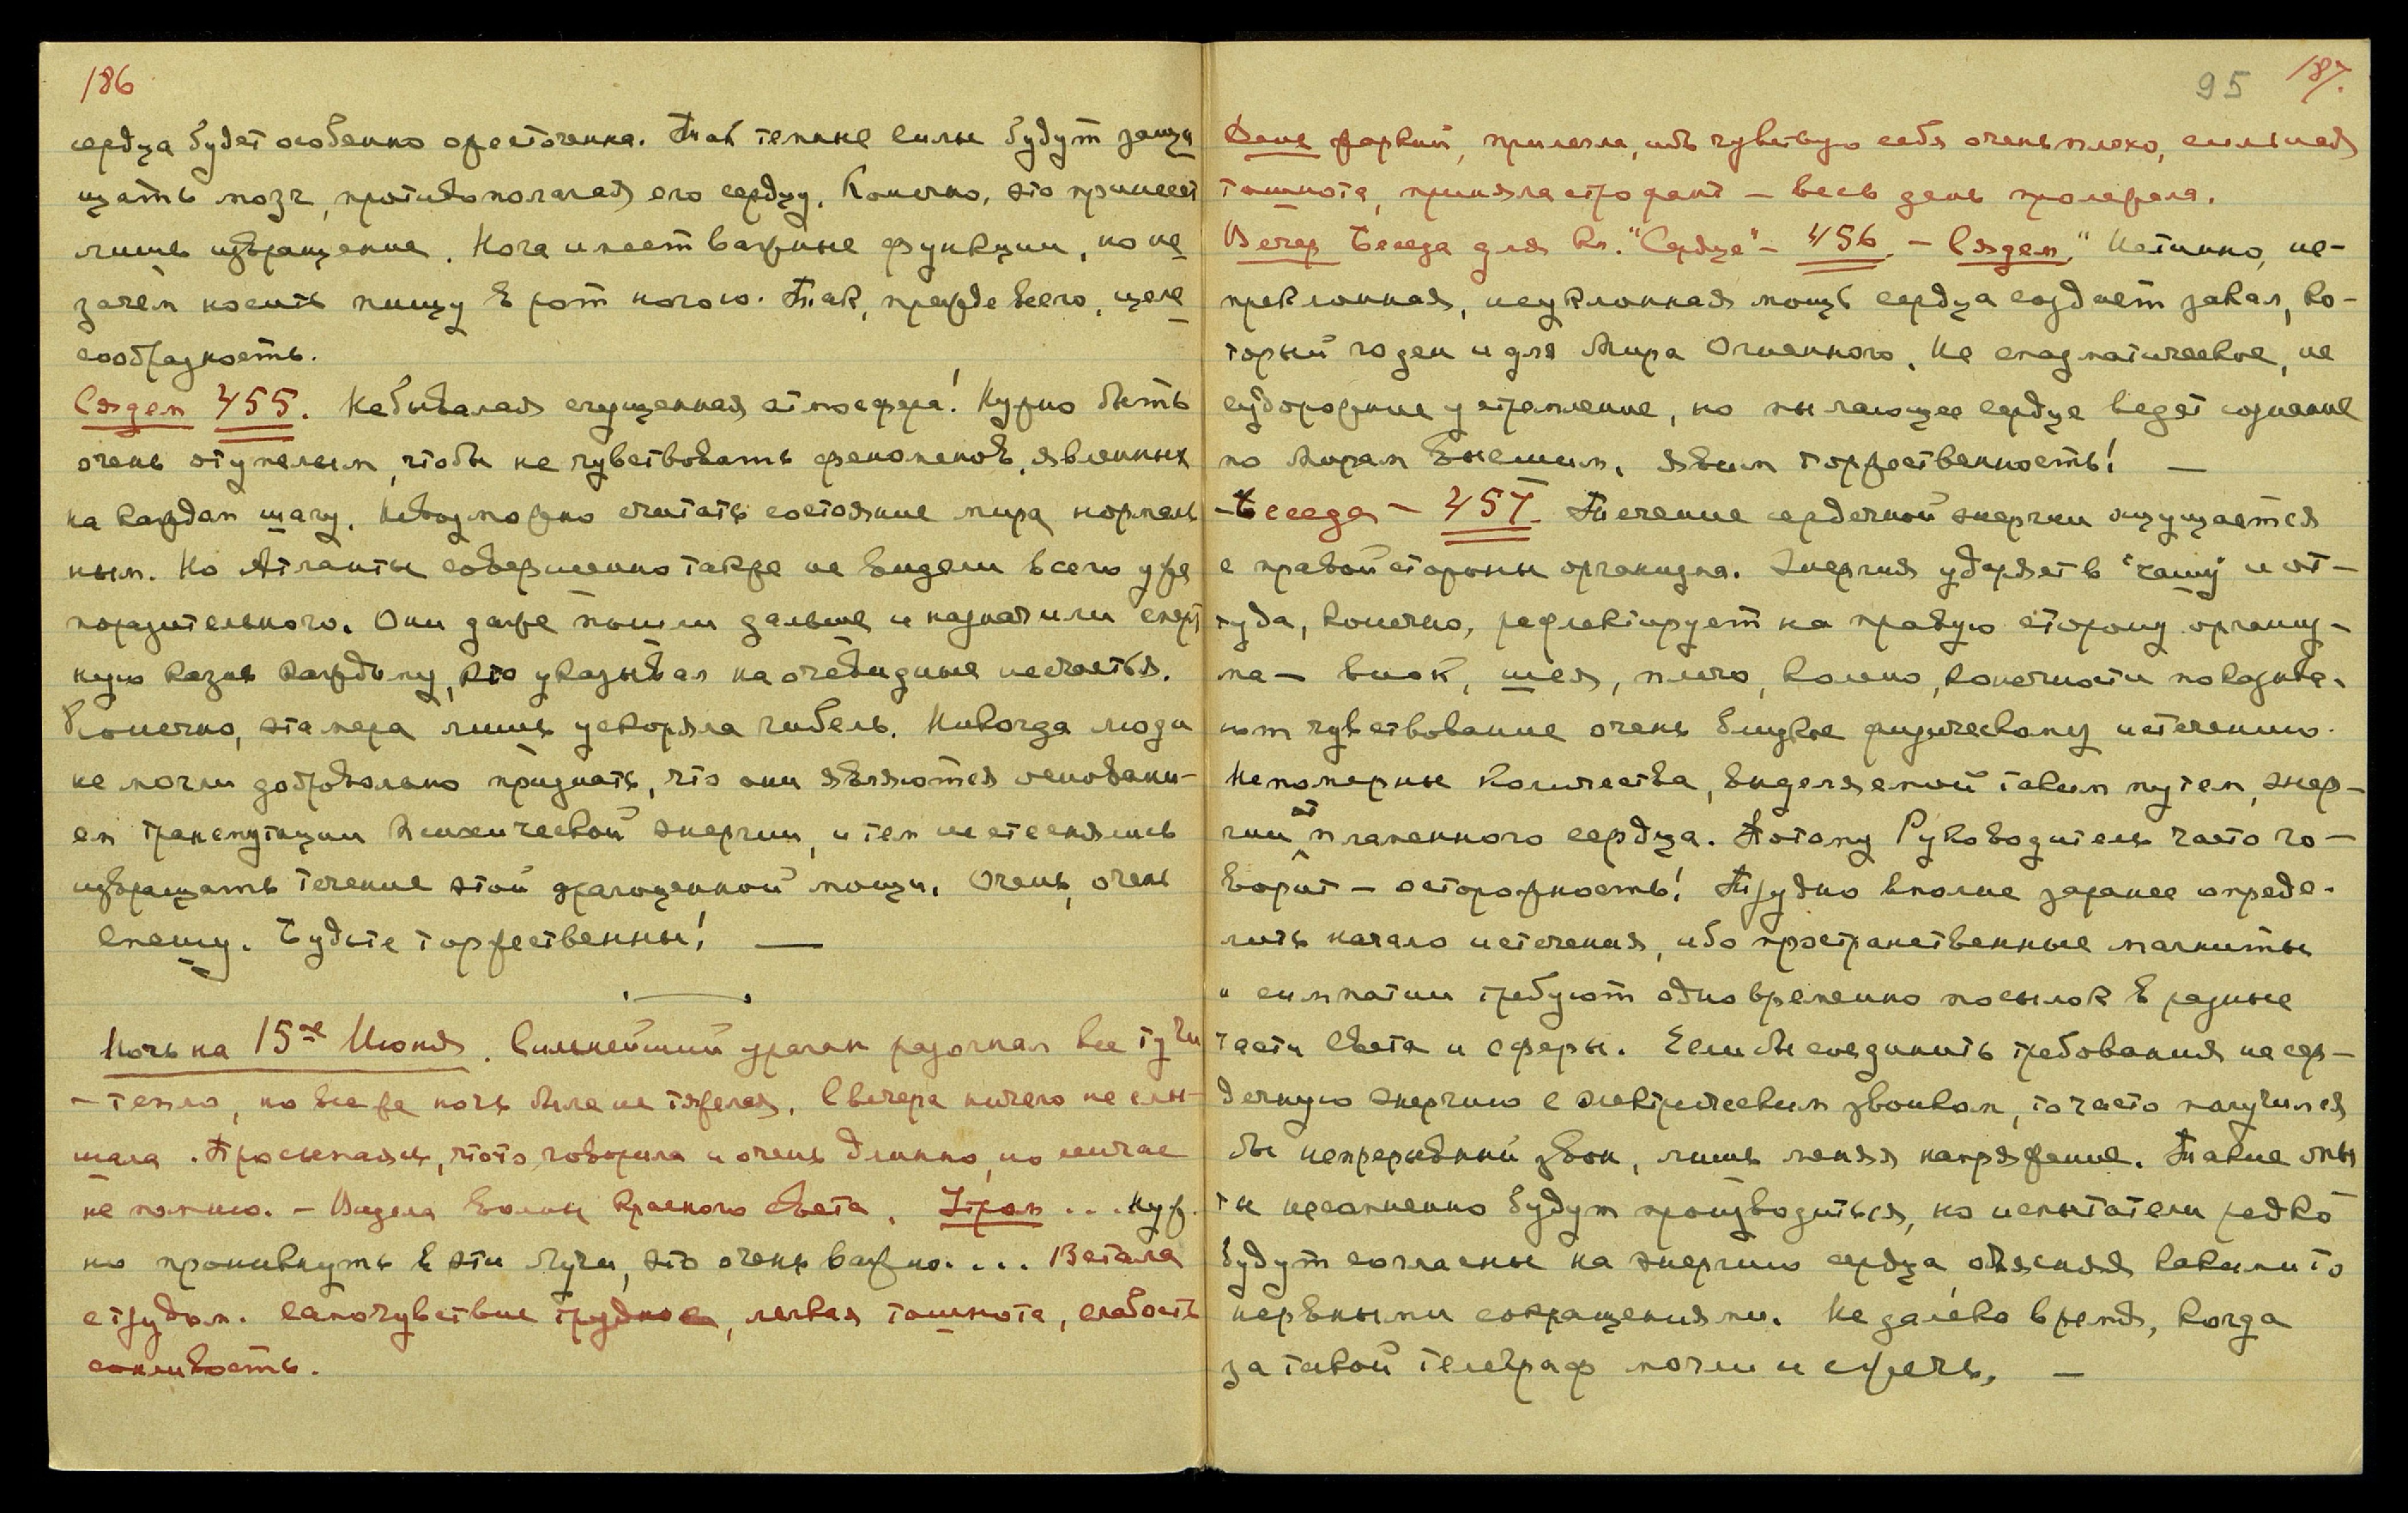 186
сердца будет особенно ожесточенна. Так темные силы будут защи
щать мозг, противополагая его сердцу. Конечно, это принесет
лишь извращение. Нога имеет важные функции, но не
зачем носить пищу в рот ногою. Так, прежде всего, целе
сообразность.
Сядем 455. Небывалая сгущенная атмосфера! Нужно быть
очень отупелым, чтобы не чувствовать феноменов, явленных
на каждом шагу. Невозможно считать состояние мира нормаль
ным. Но Атланты совершенно также не видели всего уже
поразительного. Они даже пошли дальше и назначили смерт
ную казнь каждому, кто указывал на очевидные несчастья.
Конечно, эта мера лишь ускоряла гибель. Никогда люди
не могли добровольно признать, что они являются основани-
ем трансмутации психической энергии, и тем не стеснялись
извращать течение этой драгоценной мощи. Очень, очень
спешу. Будьте торжественны! —
Ночь на 15ое Июня. Сильнейший ураган разогнал все тучи
– тепло, но все же ночь была не тяжелая. С вечера ничего не слы-
шала. Просыпаясь, что-то говорила и очень длинно, но сейчас
не помню. – Видела волны красного света. Утром ... Нуж.
но проникнуть в эти лучи, это очень важно.... Встала
с трудом. Самочувствие трудное, легкая тошнота, слабость
сонливость.
95 187.
День жаркий, прилегла, ибо чувствую себя очень плохо, сильная
тошнота, приняла строфант – весь день пролежала.
Вечер Беседа для Кн. "Сердце" – 456 – Сядем. " Истинно, не-
преклонная, неуклонная мощь сердца создает закал, ко-
торый годен и для Мира Огненного. Не спазматическое, не
судорожние устремление, но пылающее сердце ведет сознание
по Мирам Высшим. Явим торжественность! —
– Беседа – 457. Течение сердечной энергии ощущается
с правой стороны организма. Энергия ударяет в "чашу" и от-
туда, конечно, рефлектирует на правую сторону организ-
ма – висок, шея, плечо, колено, конечности показыва.
ют чувствование очень близкое физическому истечению.
Непомерны количества, выделяемой таким путем, энер-
гии от пламенного сердца. Потому Руководитель часто го-
ворит – осторожность! Трудно вполне заранее опреде.
лить начало истечения, ибо пространственные магниты
и симпатии требуют одновременно посылок в разные
части Света и сферы. Если бы соединить требования на сер-
дечную энергию с электрическим звонком, то часто получился
бы непрерывный звон, лишь меняя напряжение. Такие опы
ты несомненно будут производиться, но испытатели редко
будут согласны на энергию сердца объясняя какими то
нервными сокращениями. Не далеко время, когда
за такой телеграф могли и сжечь. —